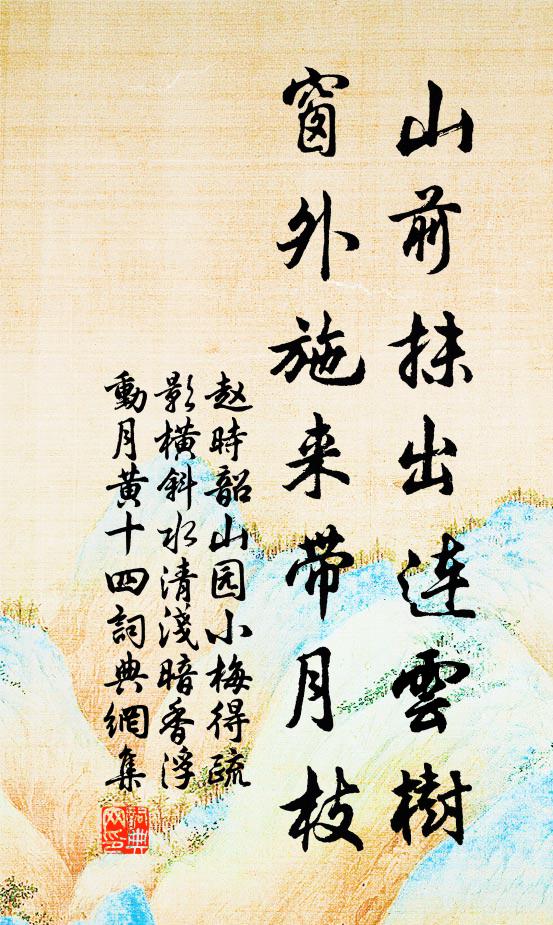 山前抹出连雲樹
窗外施来带月枝
赵時韶山园小梅得疏
影横斜水清淺暗香浮
動月黄十四詞典網集
詞典网印